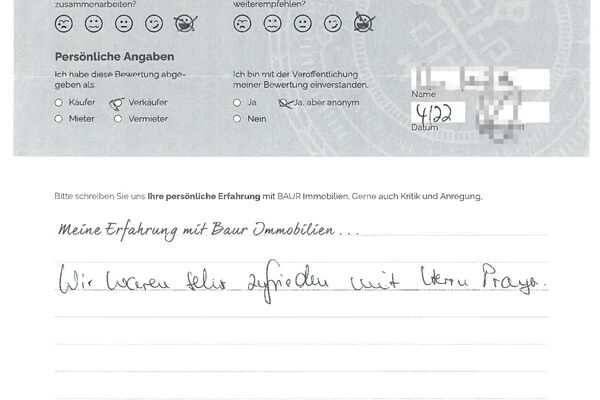 zusammenarbeiten?
weiterempfehlen?
Persönliche Angaben
Ich habe diese Bewertung abge-
geben als:
Käufer
Verkäufer
Mieter
Vermieter
Ich bin mit der Veröffentlichung
meiner Bewertung einverstanden.
Ja
Ja, aber anonym
Nein
Name
4/22
Datum
Bitte schreiben Sie uns Ihre persönliche Erfahrung mit BAUR Immobilien, Gerne auch Kritik und Anregung.
Meine Erfahrung mit Baur Immobilien....
Wir waren sehr zufrieden mit Herrn